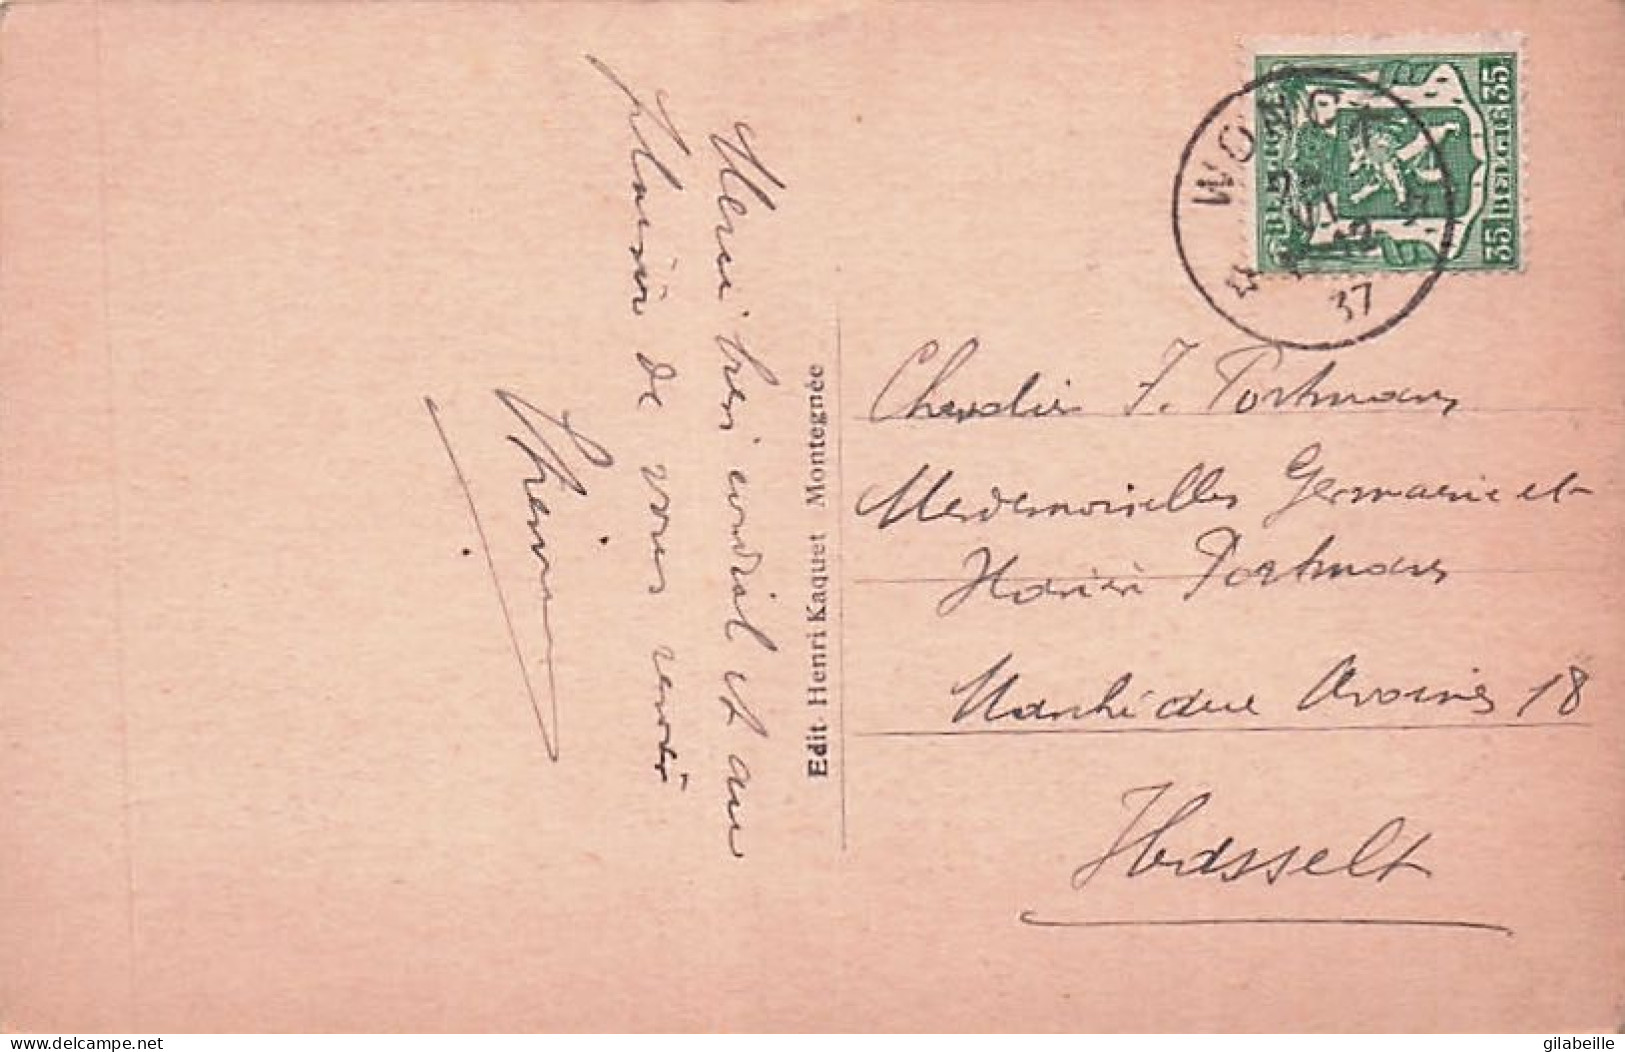 Merci bien cordial et au
plaisir de vous revoir
Edit. Henri Kaquet Montegnée
35 BELGIE 35
BELGIQUE
WONCK
37
Chevalier J. Portmans
Mesdemoiselles Germaine et
Portmans
18
Hasselt
www.delcampe.net
gilabeille